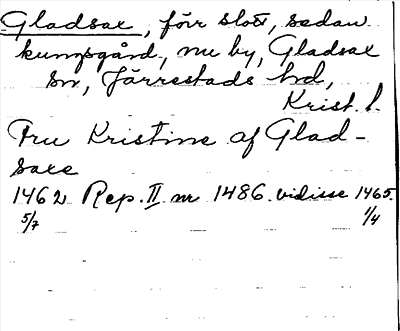 Gladsax, förr slott, sedan
kungsgård, nu by, Gladsax
sn, Järrestads hd,
Krist. l.
Fru Kristine af Glad-
saxe
1462 Rep. II nr 1486. vidisse 1465.
5/7 1/4